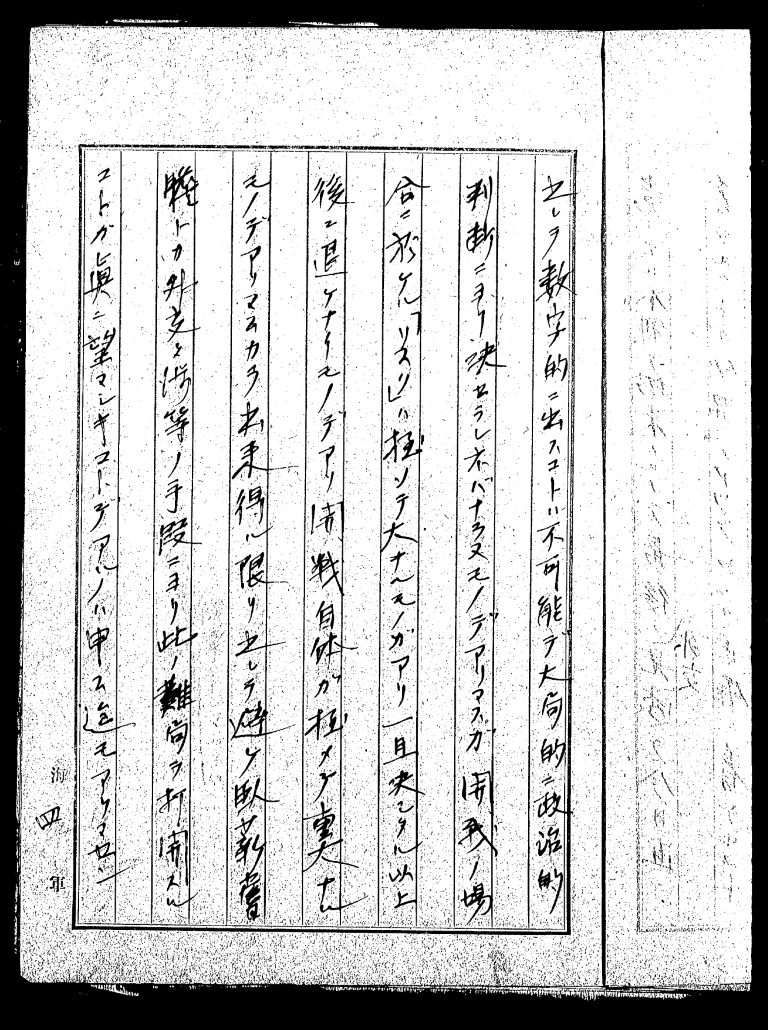 之レヲ数字的ニ出スコトハ不可能デ大局的ニ政治的
判断ニヨリ決セラレネバナラヌモノデアリマスガ開戦ノ場
合ニ於ケル「リスク」ハ極メテ大ナルモノガアリ一旦決シタル以上
後ニ退ケナイモノデアリ開戦自体ガ極メテ重大ナル
モノデアリマスカラ出来得ル限リ之レヲ避ケ臥薪嘗
膽トカ外交々渉等ノ手段ニヨリ此ノ難局ヲ打開スル
コトガ眞ニ望マシキコトデアルノハ申ス迄モアリマセン
海 軍
四